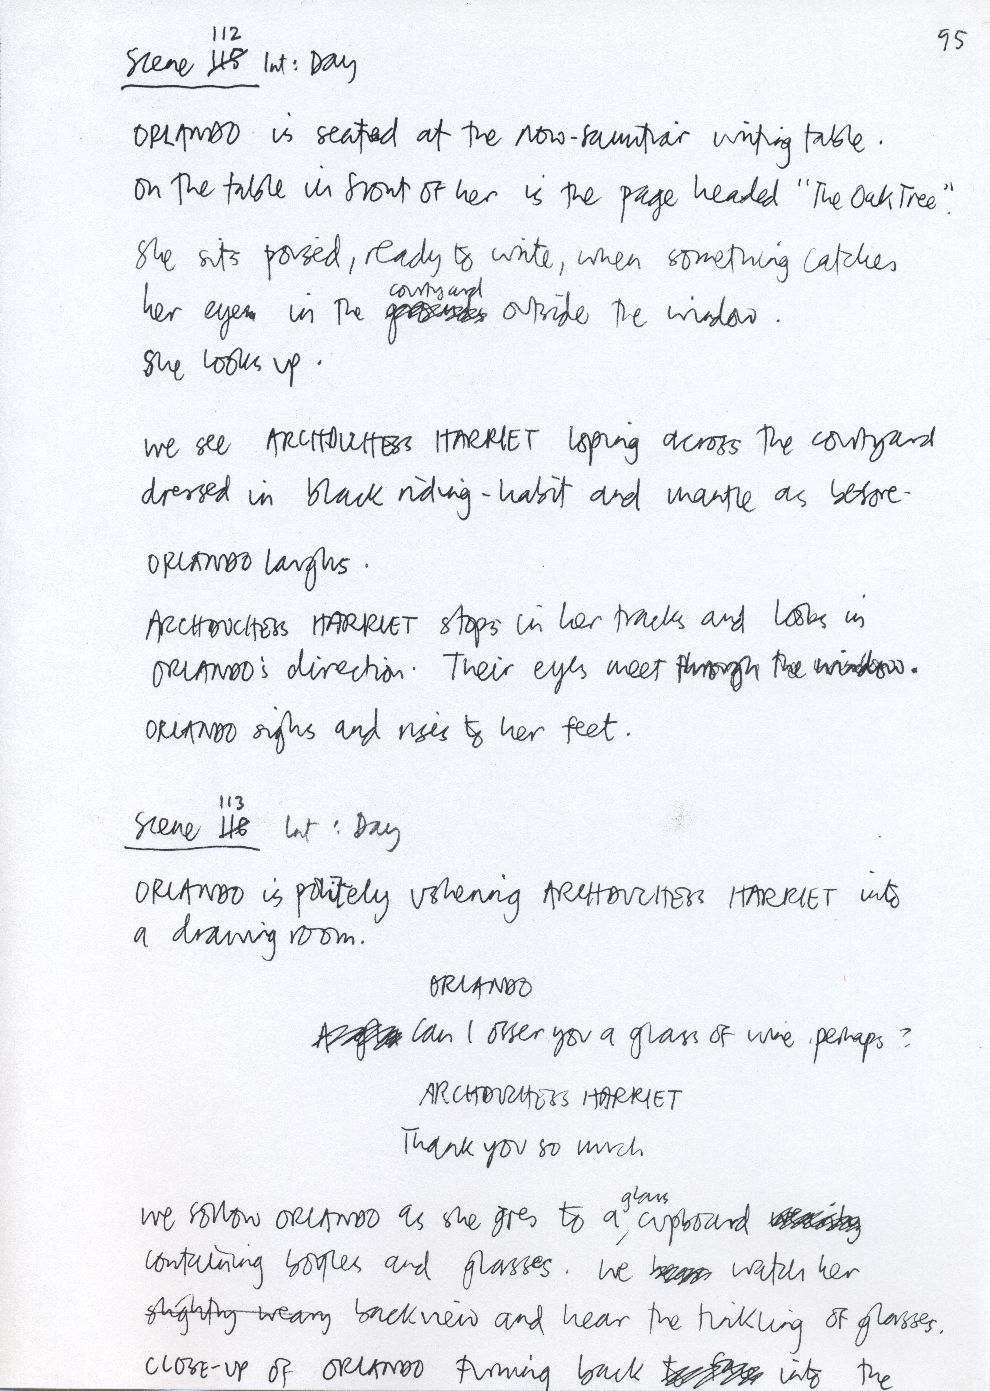 95
112
Scene 118 Int: Day
ORLANDO is seated at the now-familiar writing table.
On the table in front of her is the page headed "The Oak Tree".
She sits poised, ready to write, when something catches
courtyard
her eye in the grounds outside the window.
She looks up.
We see ARCHDUCHESS HARRIET loping across the courtyard
dressed in black riding-habit and mantle as before.
ORLANDO laughs.
ARCHDUCHESS HARRIET stops in her tracks and looks in
ORLANDO's direction. Their eyes meet through the window.
ORLANDO sighs and rises to her feet.
113
Scene Int: Day
ORLANDO is politely ushering ARCHDUCHESS HARRIET into
a drawing room.
ORLANDO
Can I offer you a glass of wine perhaps?
ARCHDUCHESS HARRIET
Thank you so much
glass
We follow ORLANDO as she goes to a, cupboard
containing bottles and glasses. We watch her
slightly weary back view and hear the tinkling of glasses.
CLOSE-UP of ORLANDO turning back into the